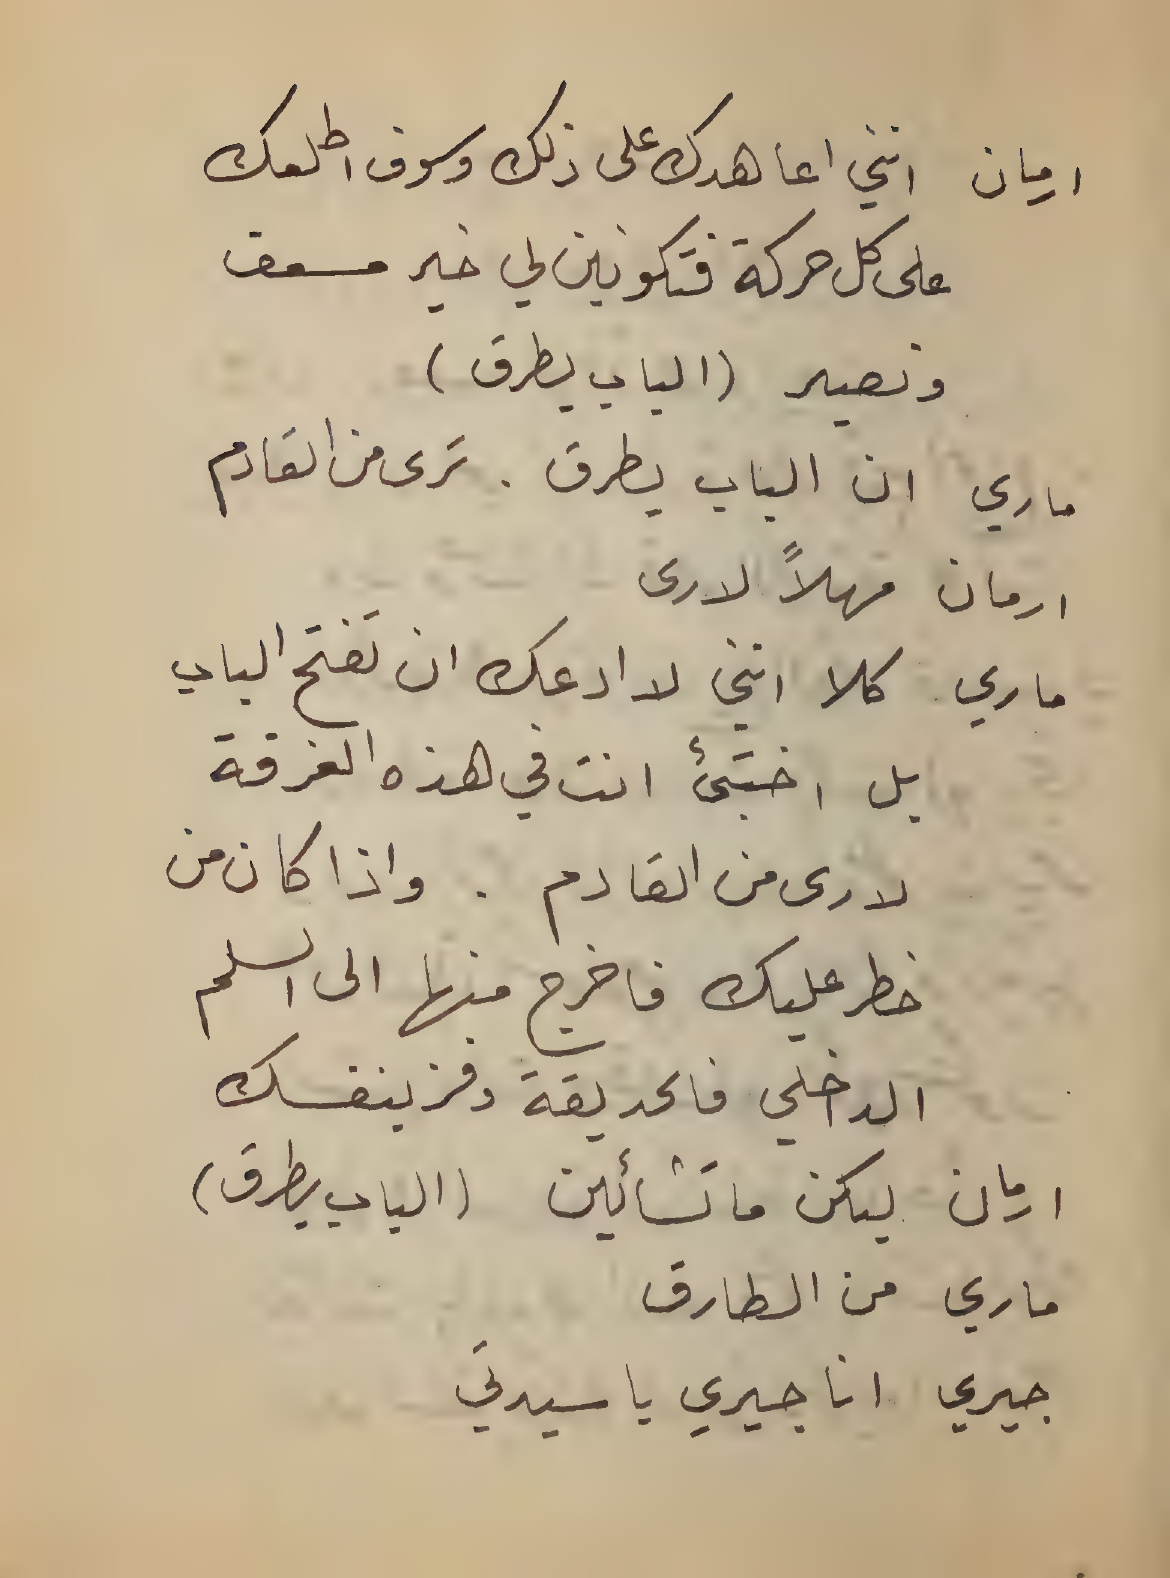 ارمان انني اعاهدك على ذلك وسوف اطلعك
على كل حركة فتكونين لي خير مسعف
ونصير (الباب يطرق)
ماري ان الباب يطرق . ترى من القادم
ارمان مهلاً لارى
ماري كلا انني لا ادعك ان تفتح الباب
بل اختبئ انت في هذه الغرفة
لارى من القادم . واذا كان من
خطر عليك فاخرج منها الى السلم
الداخلي فالحديقة وفز بنفسك
ارمان ليكن ما تشائين (الباب يطرق)
ماري من الطارق
جيري انا جيري يا سيدتي